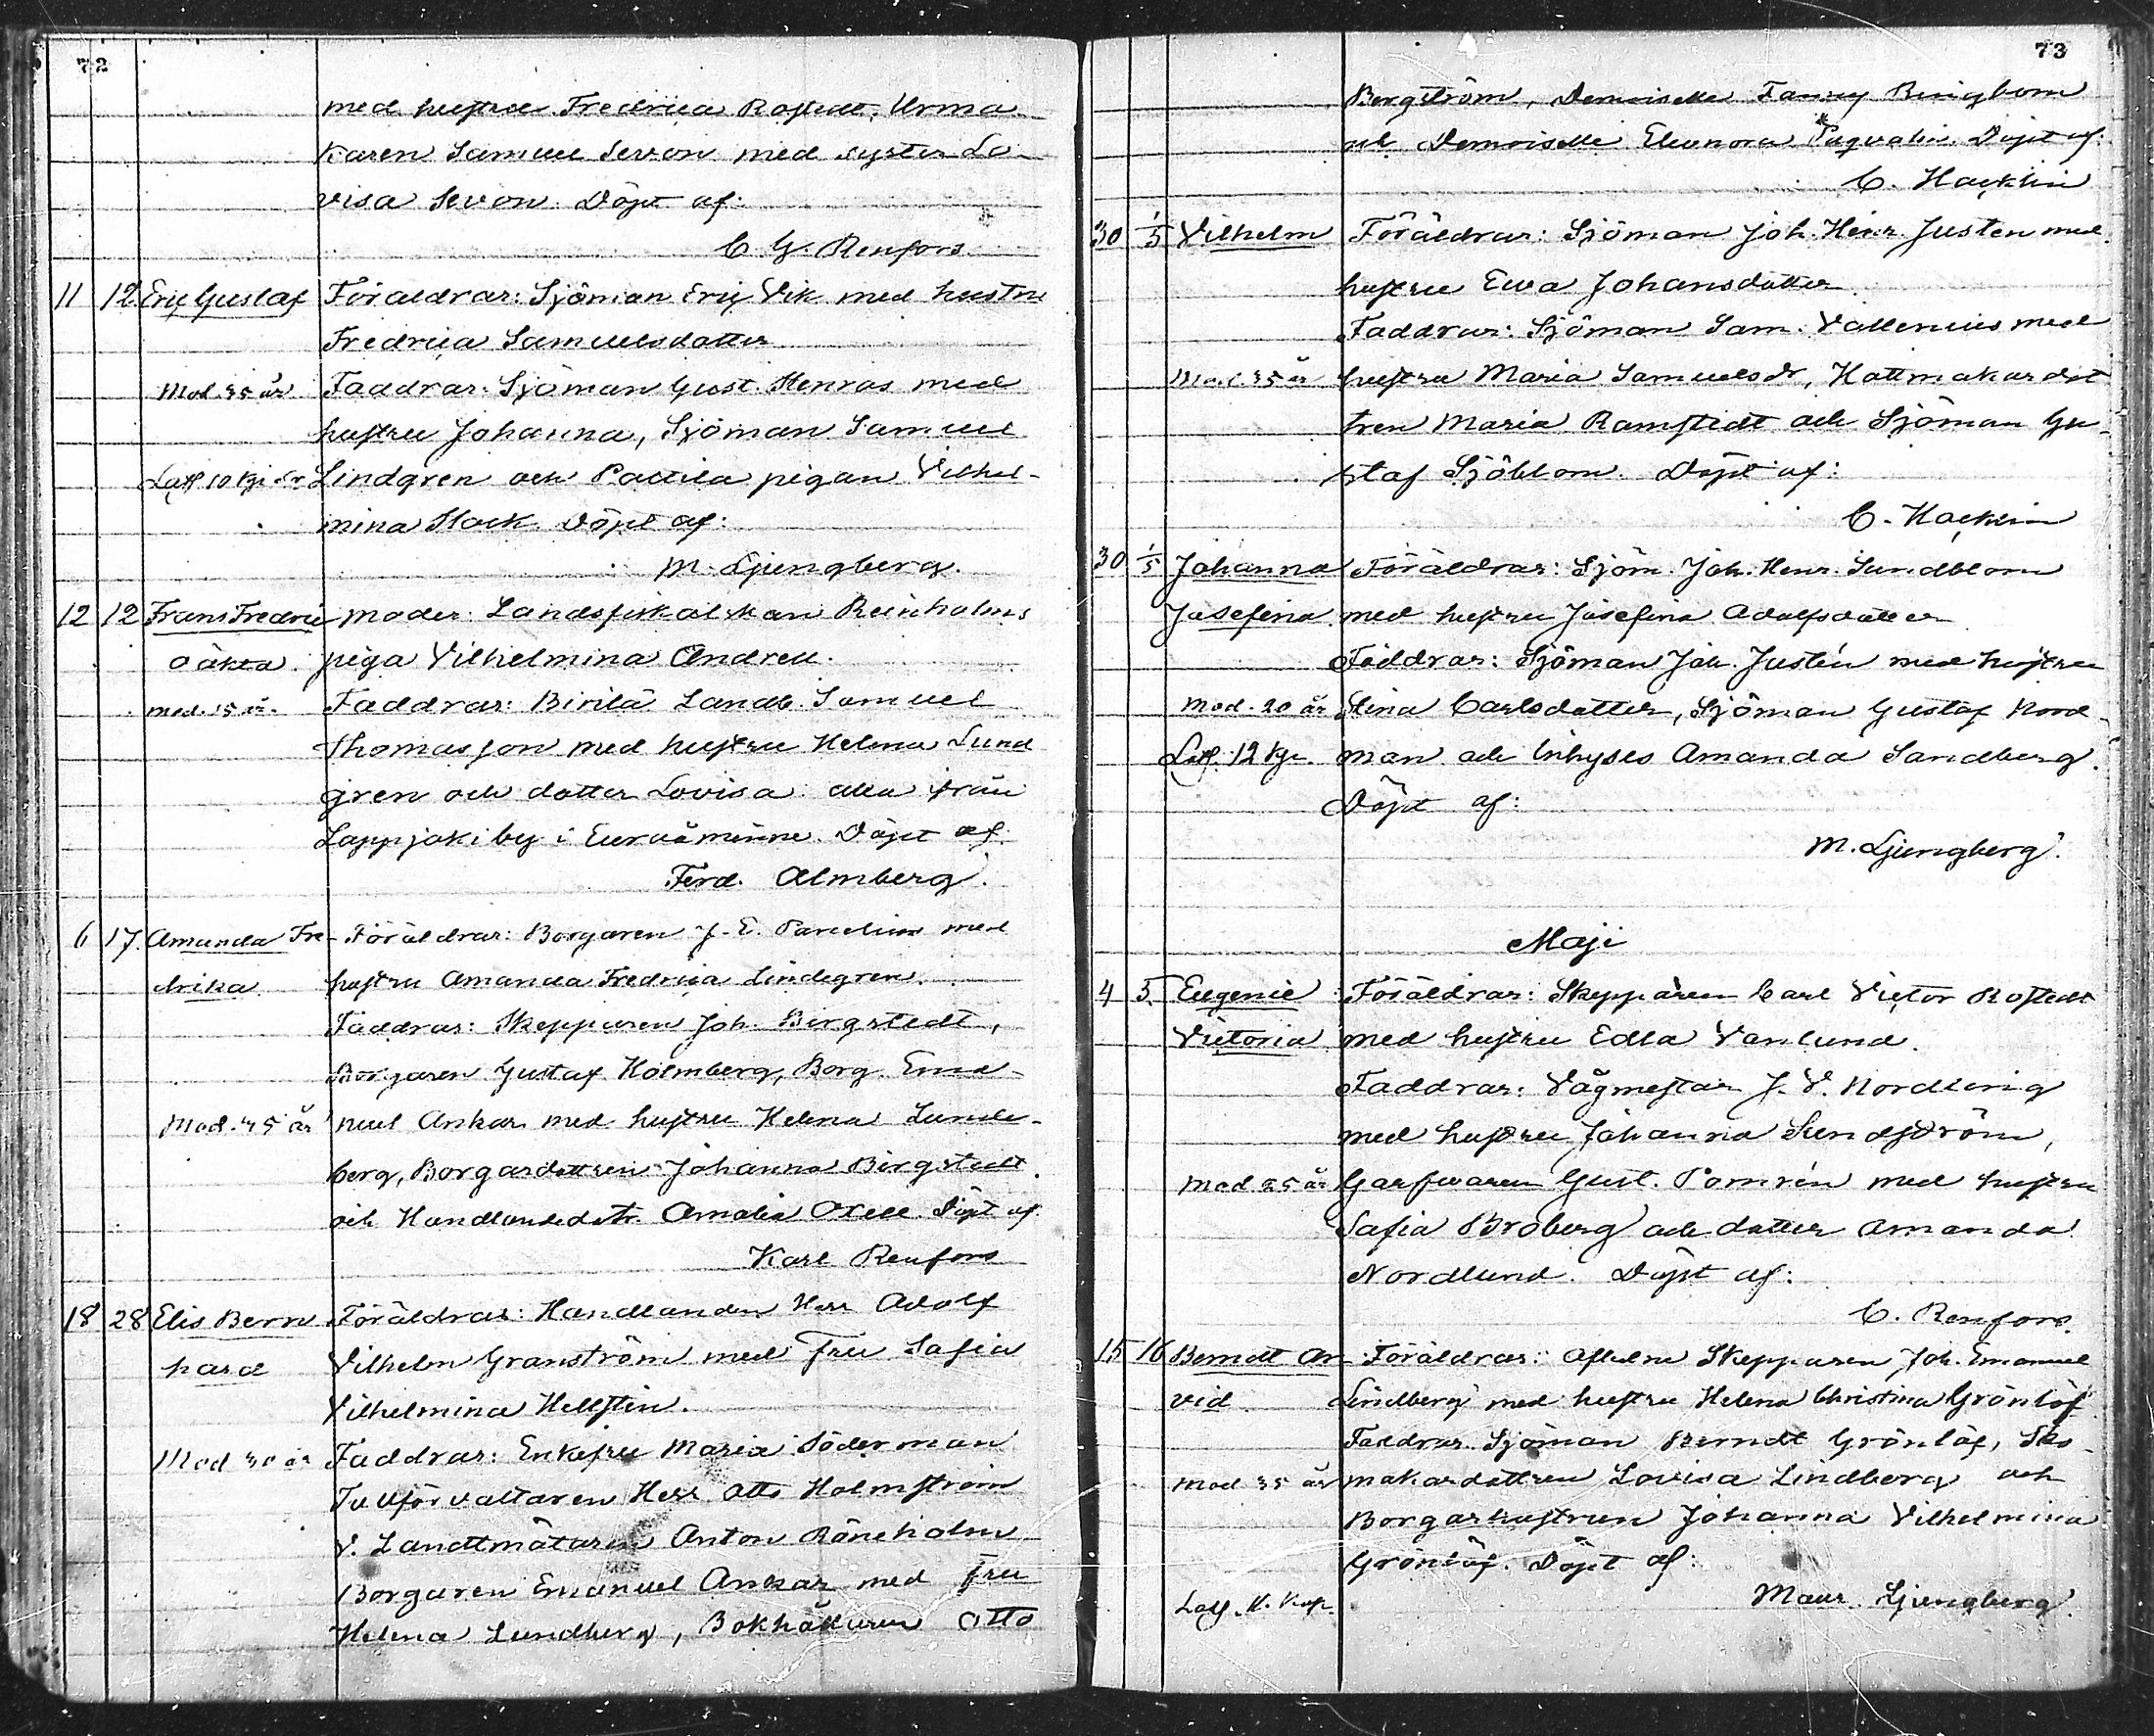 72
med hustru Fredrica Rostedt, Urma
karen Samuel Sevon med syster Lo-
visa Sevon. Döpt af:
C. G. Renfors
11 12 Eric Gustaf Föräldrar: Sjöman Eric Vik med hustru
Fredrica Samuelsdotter
Mod. 35 år Faddrar: Sjöman Gust. Henras med
hustru Johanna, Sjöman Samuel
Lindgren och pigan Vilhel-
mina Stark Döpt af:
M. Ljungberg.
12 12 Frans Fredric Moder: Landsfiskalskan Reinholms
oäkta. piga Vilhelmina Andrell.
mod. år. Faddrar: Birilä Landb. Samuel
Thomasson med hustru Helena Lund
gren och dotter Lovisa alla från
Lappjoki by i Euraåminne. Döpt af.
Ferd. Almberg.
6 17. Amanda Fre- Föräldrar: Borgaren J. E. Parelius med
drika hustru Amanda Fredrica Lindegren.
Faddrar: Skepparen Joh. Birgstedt,
Borgaren Gustaf Holmberg, Borg. Ema-
Mod. 35 år nuel Ankar med hustru Helena Lunde-
berg, Borgardottren Johanna Birgstedt
och Handlandedotr. Amalia Oxell. Döpt af
Karl Renfors
18 28 Elis Bern Föräldrar: Handlanden Herr Adolf
hard Vilhelm Granström med Fru Sofia
Vilhelmina Hellstén.
Mod 30 år Faddrar: Enkefru Maria Söderman
Tullförvaltaren Herr Otto Holmström
V. Landtmätaren Anton Röneholm
Borgaren Emanuel Ankar med Fru
Helena Lundberg, Bokhållaren Otto
73
Bergström, Demoiselle Fanny Ringbom
och Demoiselle Eleonora Paqvalin. Döpt af.
C. Hacklin
30 1/5 Vilhelm Föräldrar: Sjöman Joh. Henr. Justen med
hustru Ewa Johansdotter
Faddrar: Sjöman Sam. Vallenius med
Mod. 35 år hustru Maria Samuelsdr, Hattmakardot
tren Maria Ramstedt och Sjöman Gu-
staf Sjöblom. Döpt af:
C. Hacklin
30 1/5 Johanna Föräldrar: Sjöm. Joh. Henr. Sundblom
Josefina med hustru Josefina Adolfsdotter
Faddrar: Sjöman Joh. Justén med hustru
Mod. 20 år Stina Carlsdotter, Sjöman Gustaf Nord-
12 kp. man och Inhyses Amanda Sandberg.
Döpt af:
M. Ljungberg.
Maji
4 5. Eugenie Föräldrar: Skepparen Carl Victor Rostedt
Victoria med hustru Edla Vanlund.
Faddrar: Vågmestar J. V. Nordling
med hustru Johanna Sundström,
Mod. 25 år Garfvaren Gust. Pomrén med hustru
Sofia Broberg och dotter Amanda
Nordlund. Döpt af:
C. Renfors.
15 16 Berndt Ar Föräldrar: Aflidne Skepparen Joh. Emanuel
vid Lindberg med hustru Helena Christina Grönlöf
Faddrar: Sjöman Berndt Grönlöf, Sko-
Mod. 35 år makardottren Lovisa Lindberg och
Borgarhustrun Johanna Vilhelmina
Grönlöf. Döpt af:
Maur. Ljungberg.